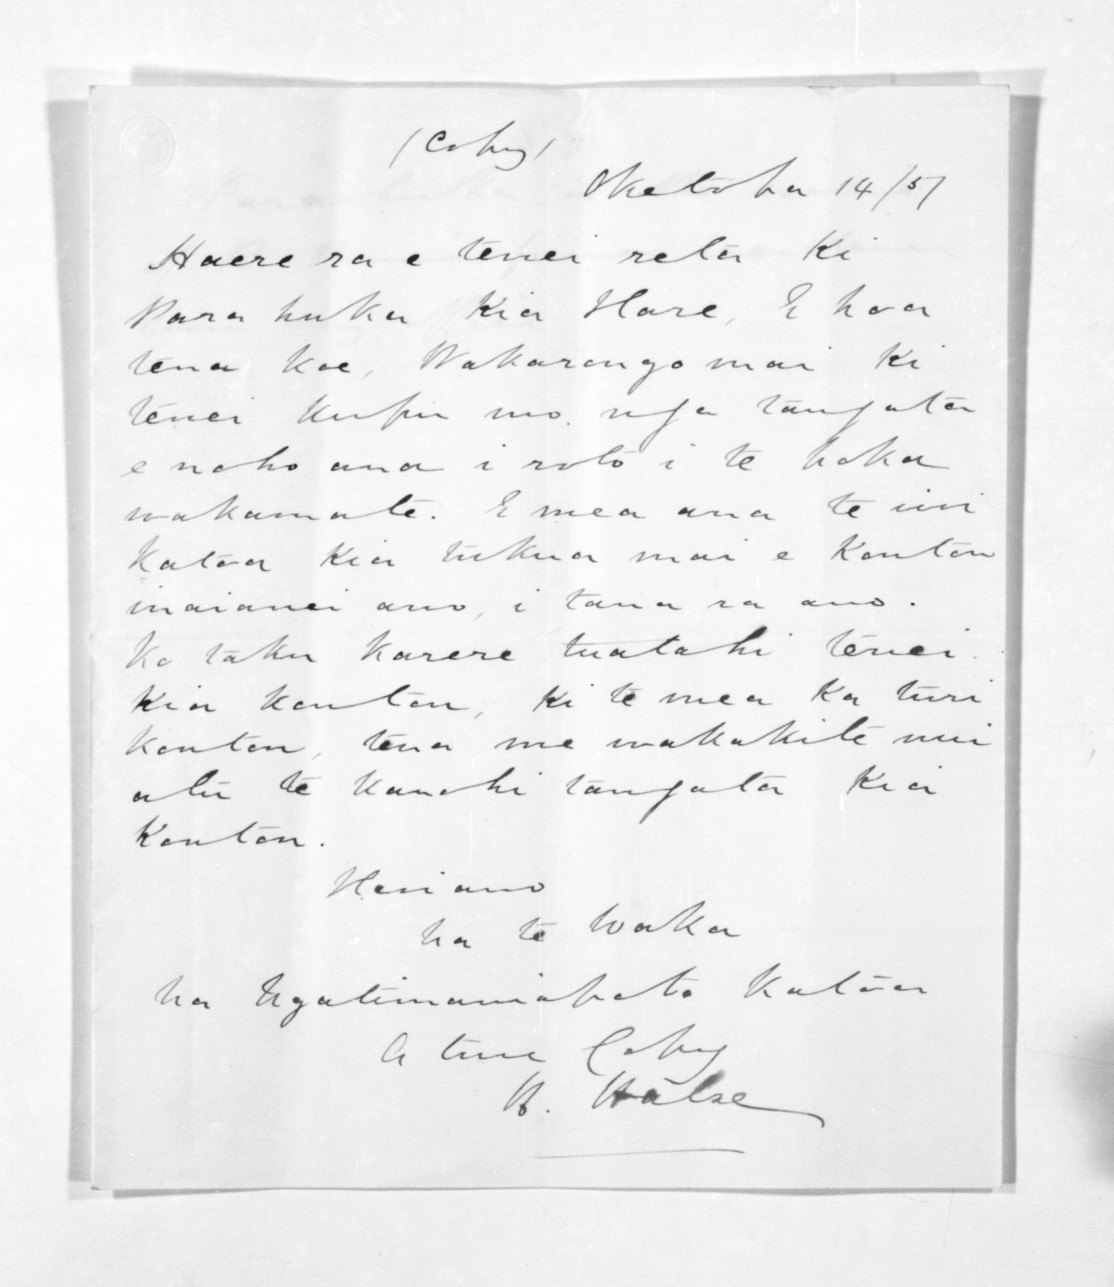 (Copy)
Oketopa 14/57
Haere ra e tenei reta ki
Parahuka kia Hare, E hoa
tena koe, Wakarongo mai ki
tenei kupu mo nga tangata
e noho ana i roto i te hoka
wakamate. E mea ana te iwi
katoa kia tukua mai e Kouton
inaianei ano, i tana ra ano.
Ko taku karere tuatahi tenei
kia kouton, ki te mea ka turi
kouton, tena me wakakite nui
atu te kanohi tangata kia
Kouton.
Heri ano
Na te Waka
Na Ngatimaniapoto Katoa
A true Copy
H. Halse